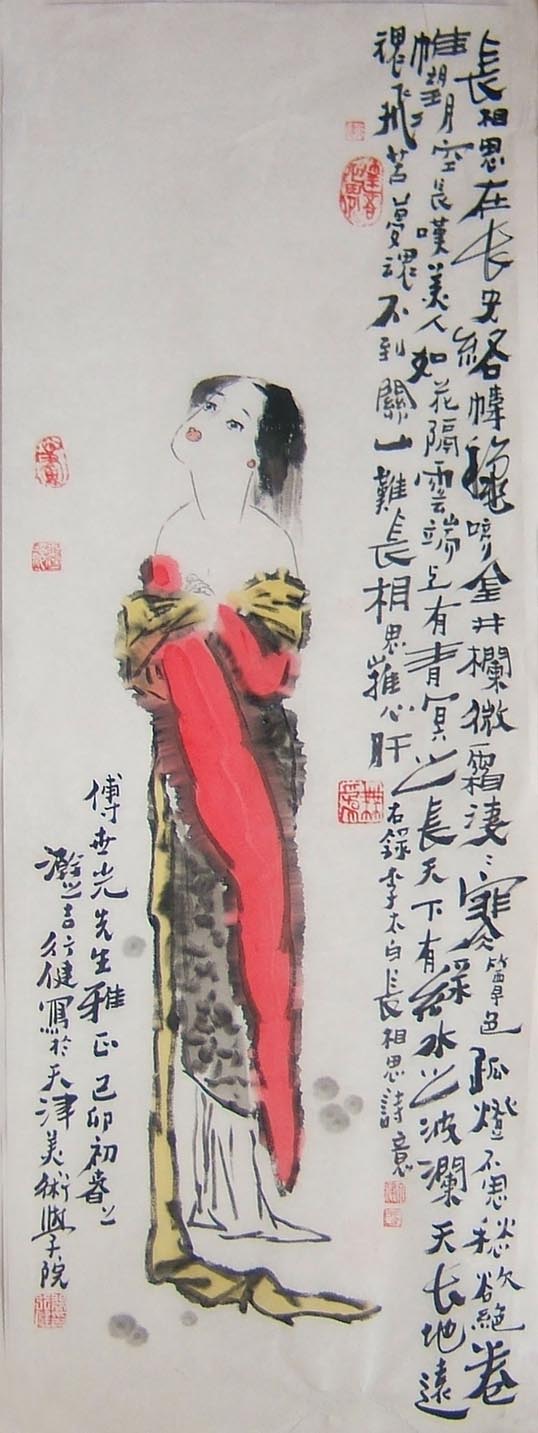 長相思在長安絡幃秋啼金井欄微霜淒淒寒簟色孤燈不思愁欲絕卷
帷望月空長嘆美人如花隔雲端上有青冥之長天下有綠水之波瀾天長地遠
魂飛苦夢魂不到關山難長相思摧心肝
右錄李太白長相思詩意
傅世光先生雅正己卯初春之
行健寫於天津美術學院